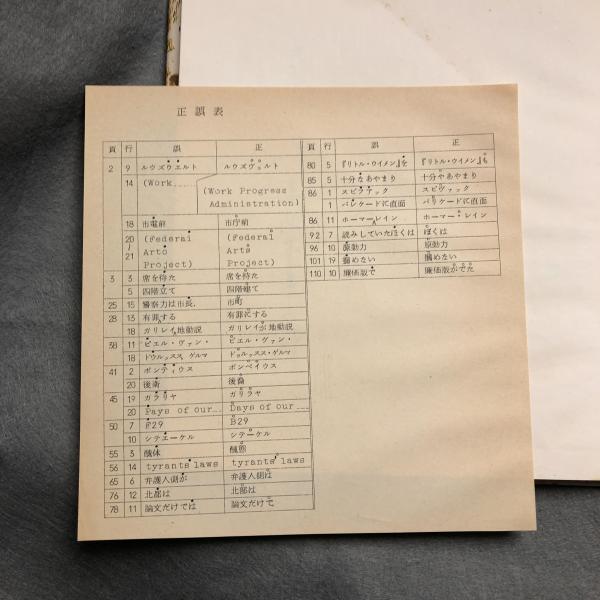 正誤表
頁 行 誤 正
2 9 ルウズウエルト ルウズヴェルト
14 (Work...... (Work Progress
Administration)
18 市電前 市庁前
20 (Federai (Federal
~ Arto Arts
21 Project) Project)
3 3 席を待た 席を待た
5 四階立て 四階建て
25 15 警察力は市長、 市町
28 13 有罪する 有罪にする
18 ガリレイ地動説 ガリレイが地動説
38 11 ピエル・ヴァン・ ピエル・ヴァン・
18 ドウルッスス、ゲルマ ドゥルッスス・ゲルマ
41 2 ポンティウス ポンペイウス
20 後衛 後裔
45 19 ガラリヤ ガリラヤ
20 Pays of our.... Days of our....
50 7 E29 B29
10 シテエーケル シテーケル
55 3 醜体 醜態
56 14 tyrants'laws tyrants' laws
65 6 弁護人側が 弁護人側は
76 12 北部は 北部は
78 11 論文だけでは 論文だけで
頁 行 誤 正
80 5 『リトル・ウイメン』を 『リトル・ウイメン』も
85 5 十分なあやまり 十分やあやまり
86 1 スピヴァック スピヴァック
1 バレケードに直面 バリケードに直面
86 11 ホーマーレイン ホーマー・レイン
92 7 読みしていたほくは ぼくは
96 10 原動力 原動力
101 19 掴めない 掴めない
110 10 廉価版で 廉価版がでた